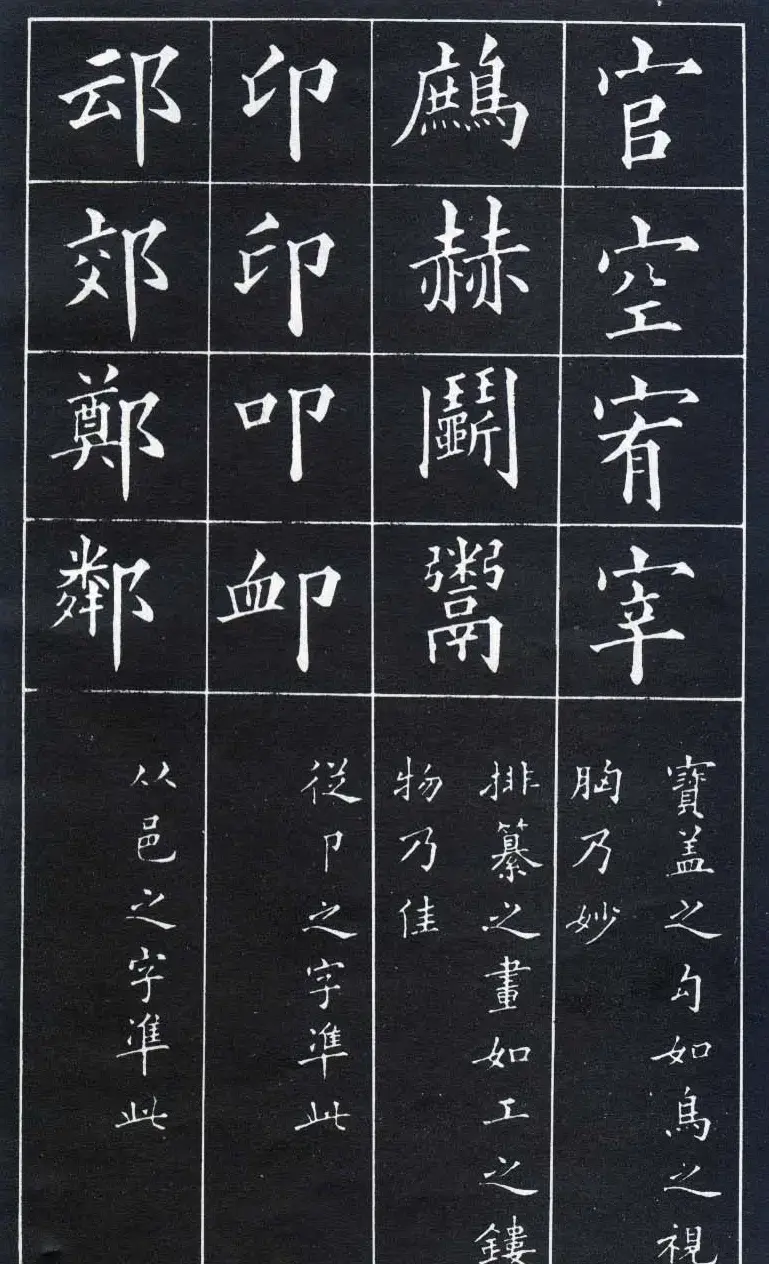 官空宥宰
寶盖之勾如鳥之視
胸乃妙
鷓赫鬬鬻
排纂之畫如工之鏤
物乃佳
印印叩卹
從卩之字凖此
䢵郊鄭鄰
从邑之字凖此